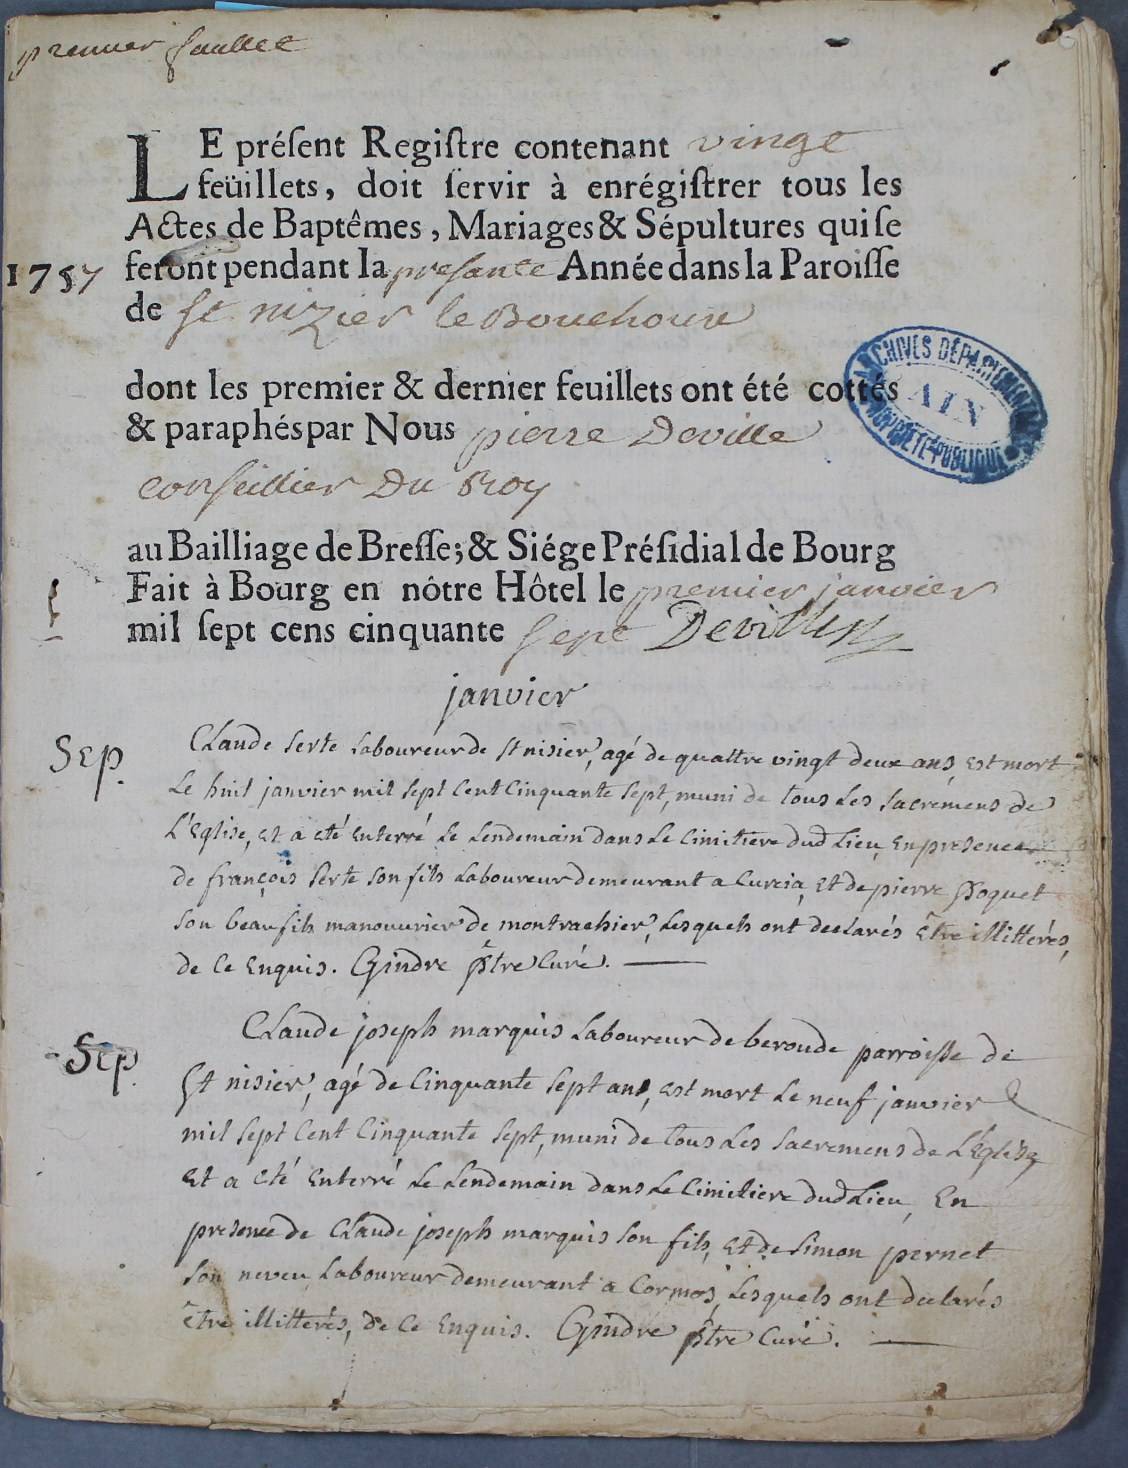 premier faullet
LE présent Registre contenant vingt
feüillets, doit servir à enrégistrer tous les
Actes de Baptêmes, Mariages & Sépultures qui se
1757 feront pendant la presante Année dans la Paroisse
de st nizier le Bouchoux
dont les premier & dernier feuillets ont été cottés
& paraphés par Nous pierre Deville
conseillier Du Roy
ARCHIVES DÉPARTEMENTALES
AIN
PROPRIÉTÉ PUBLIQUE
au Bailliage de Bresse; & Siége Présidial de Bourg
Fait à Bourg en nôtre Hôtel le premier janvier
mil sept cens cinquante sept Deville
janvier
Sep. Claude Serte Laboureur de St nisier, agé de quattre vingt deux ans, est mort
Le huit janvier mil Sept Cent Cinquante Sept, muni de tous Les Sacremens de
L'Eglise, et a eté Enterré Le Lendemain dans Le Cimitiere dud Lieu, En presence
de françois Serte Son fils Laboureur demeurant a Curcia, et de pierre Poquet
Son beaufils manouvrier de montrachier, Lesquels ont declarés Être illitterés,
de Ce Enquis. Gindre Ptre Curé.
Sep. Claude joseph marquis Laboureur de beroude parroisse de
St nisier, agé de Cinquante Sept ans, est mort Le neuf janvier
mil Sept Cent Cinquante Sept, muni de tous Les Sacremens de L'Eglise,
Et a eté Enterré Le Lendemain dans Le Cimitiere dud Lieu, En
presence de Claude joseph marquis Son fils, Et de Simon pernet
Son neveu Laboureur demeurant a Cormos, Lesquels ont declarés
Être illitterés, de Ce Enquis. Gindre Ptre Curé.